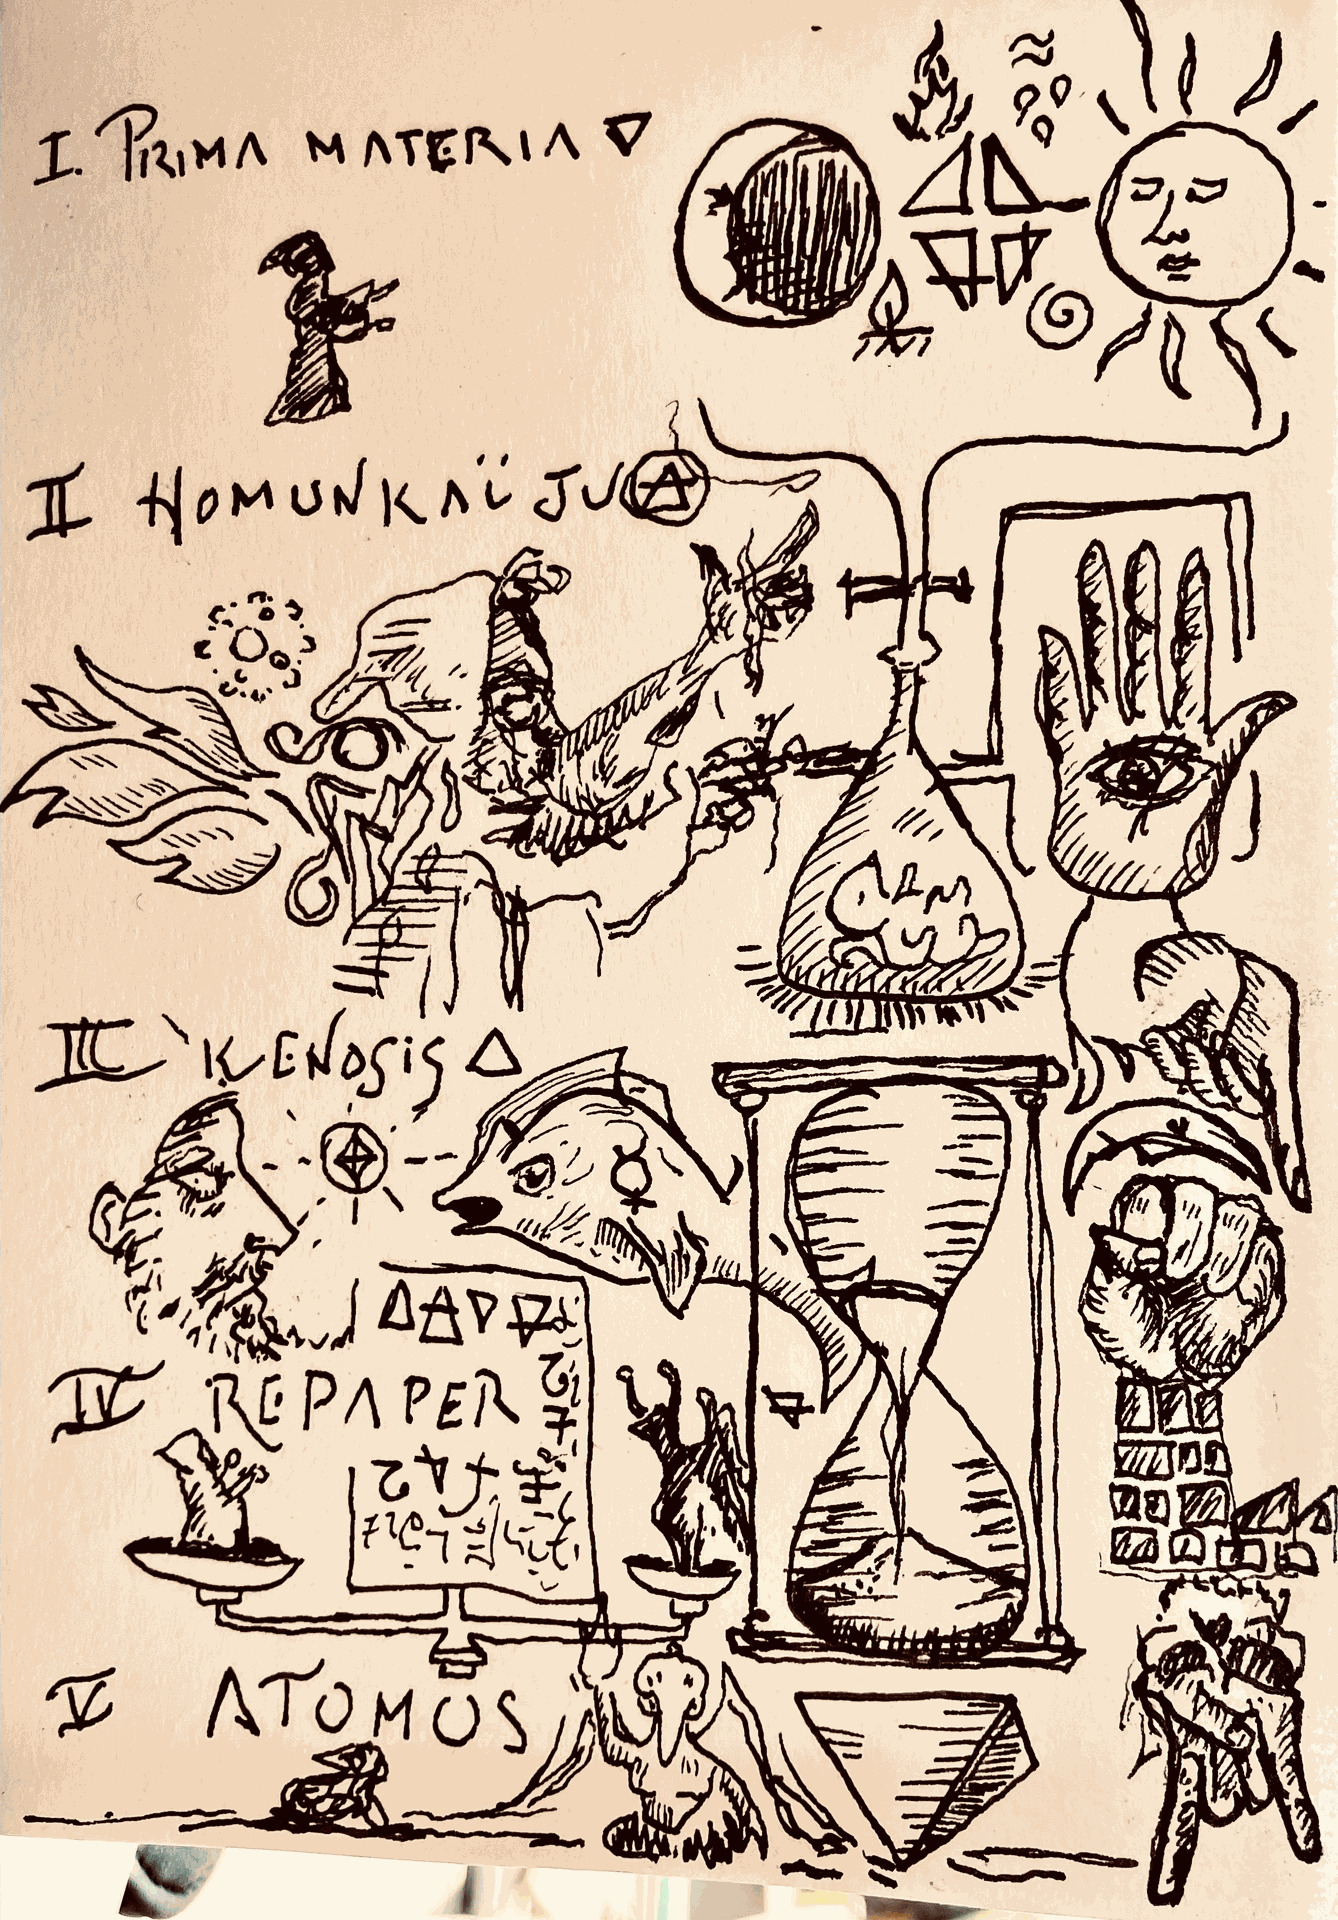 I. PRIMA MATERIA
II HOMUNKAÏJUA
III KENOSIS
IV REPAPER
V ATOMOS